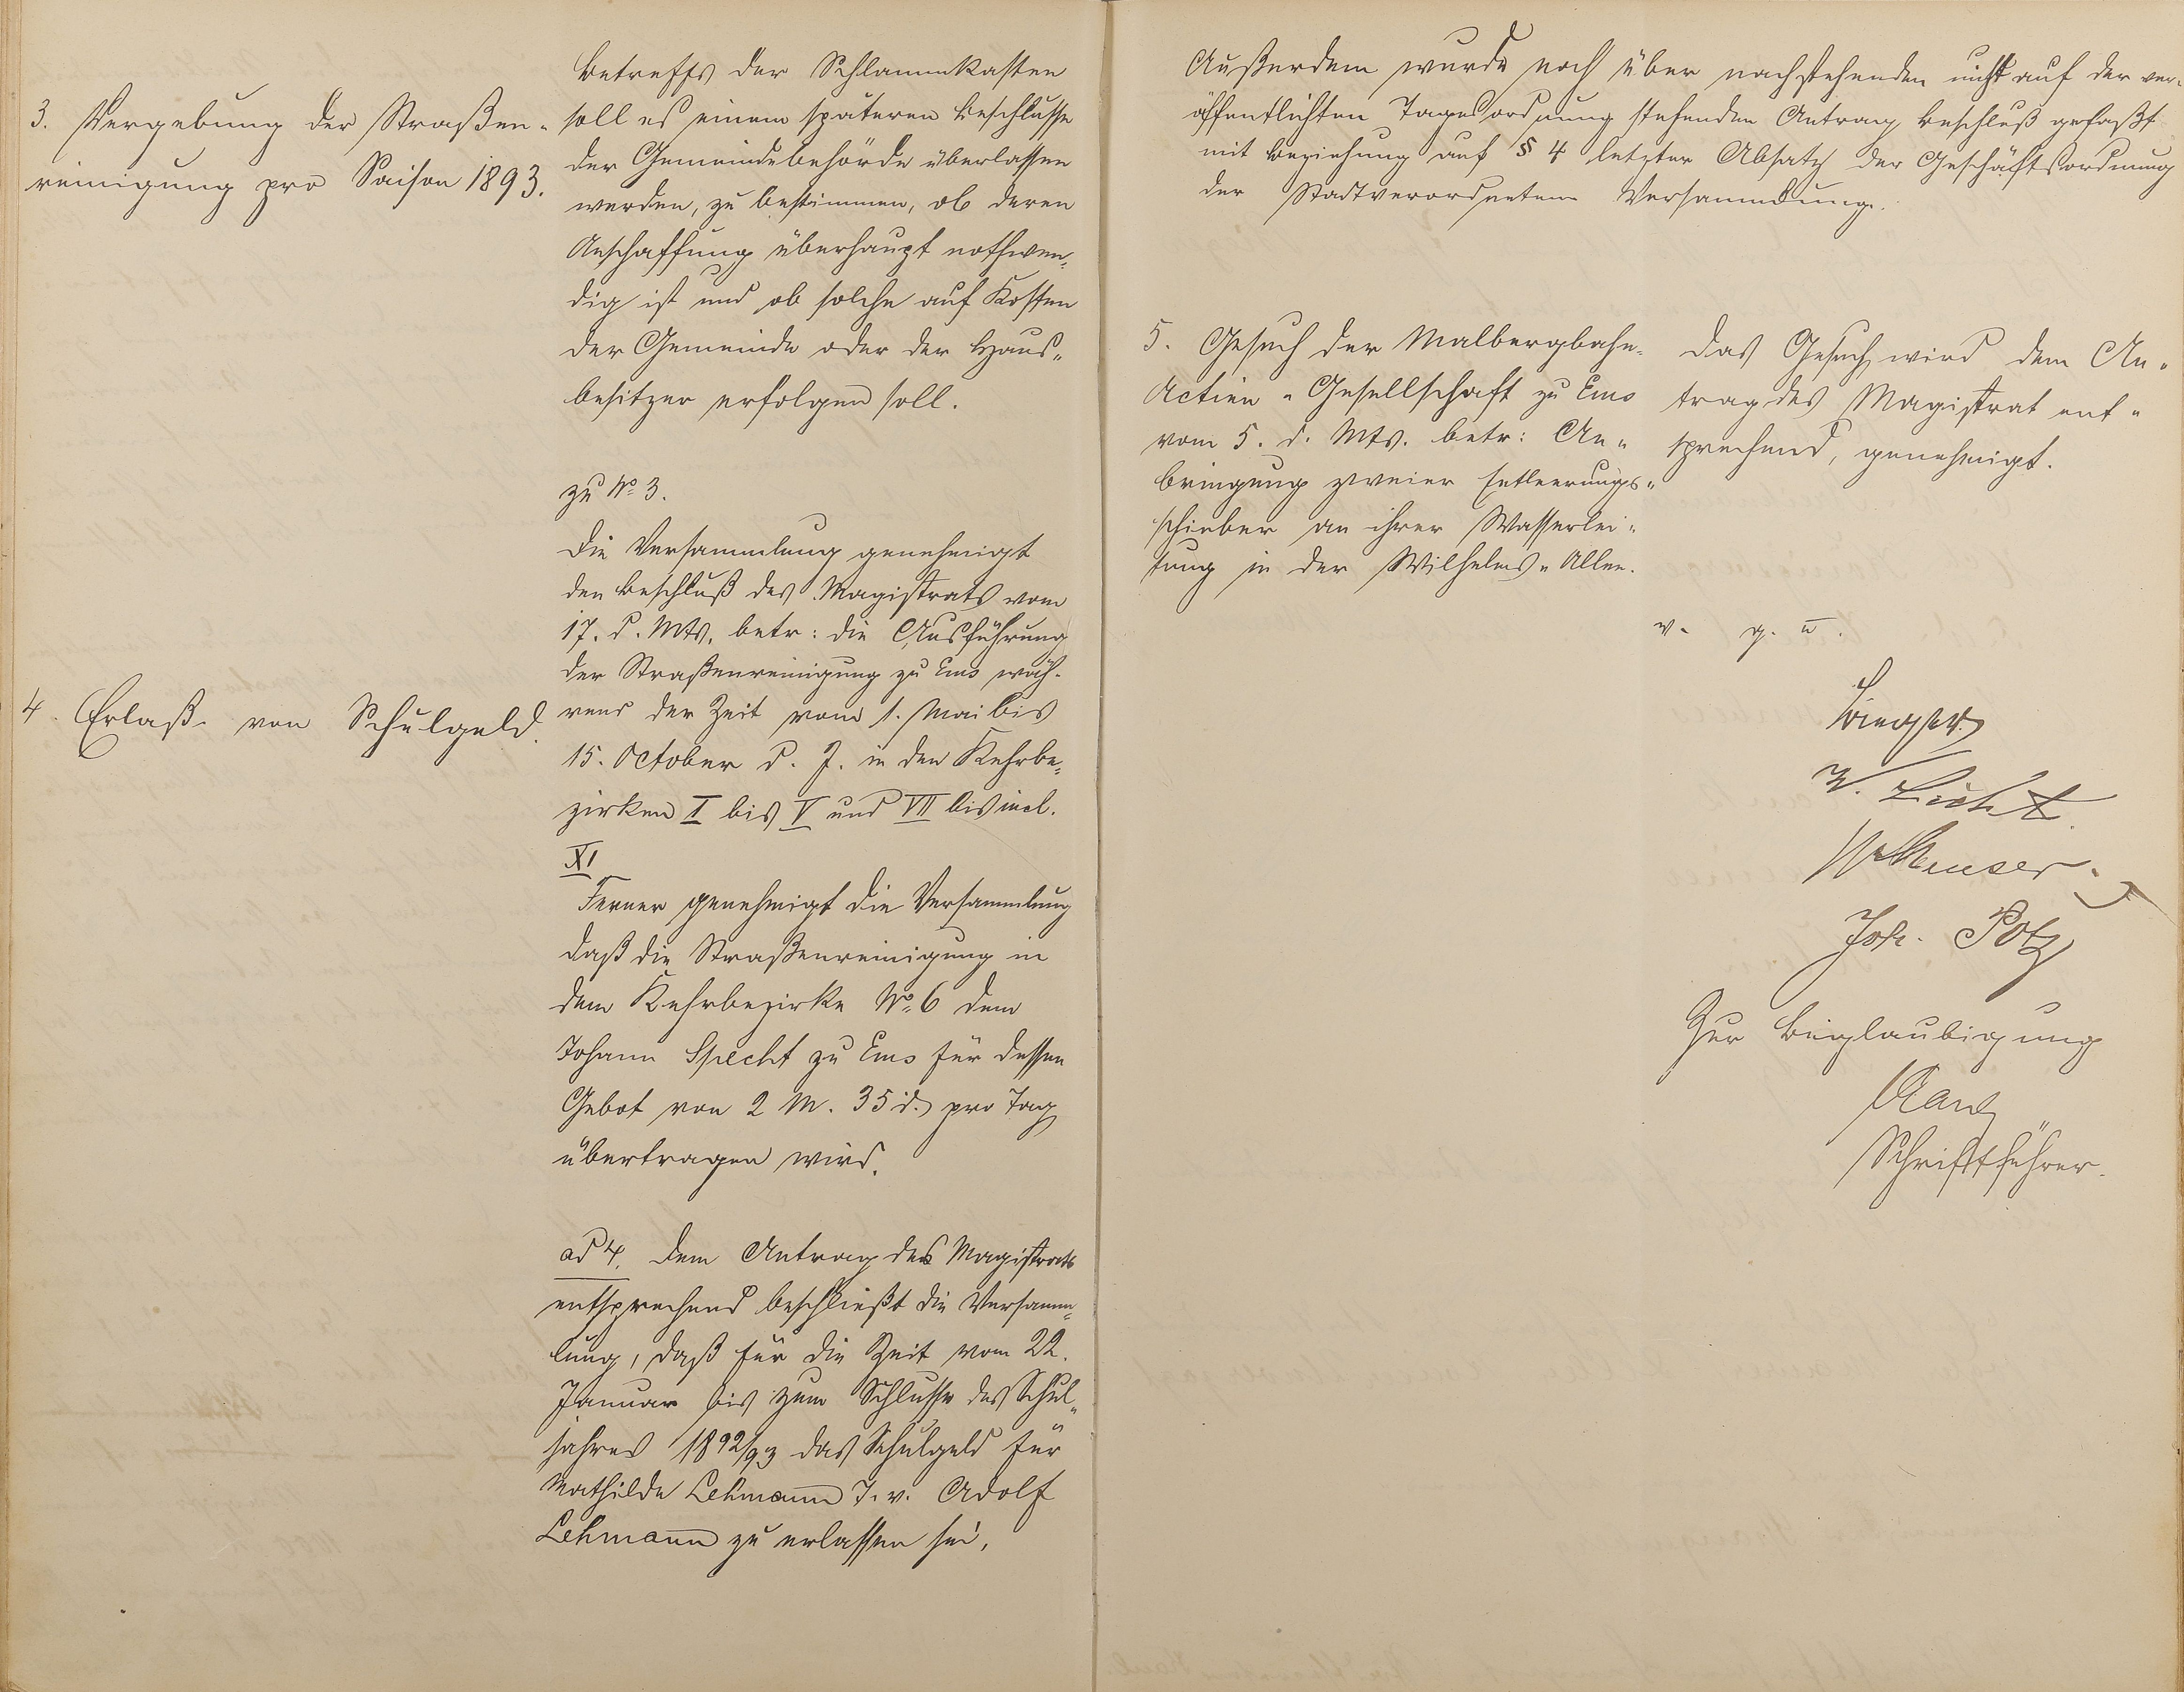 3. Vergebung der Straßen-
reinigung pro Saison 1893.
4. Erlaß von Schulgeld.
Betreffs der Schlammkasten
soll es einem späteren Beschlusse
der Gemeindebehörde überlassen
werden, zu bestimmen, ob deren
Anschaffung überhaupt nothwen-
dig ist und ob solche auf Kosten
der Gemeinde oder der Haus-
besitzer erfolgen soll.
zu No 3.
Die Versammlung genehmigt
den Beschluß des Magistrats vom
17. d. Mts. betr: die Ausführung
der Straßenreinigung zu Ems wäh-
rend der Zeit vom 1. Mai bis
15. October d. J. in den Kehrbe-
zirken I bis V und VII bis incl.
XI
Ferner genehmigt die Versammlung
daß die Straßenreinigung in
dem Kehrbezirke No 6 dem
Johann Specht zu Ems für dessen
Gebot von 2 M. 35 d. pro Tag
übertragen wird.
ad 4. Dem Antrag des Magistrats
entsprechend beschließt die Versamm-
lung, daß für die Zeit vom 22.
Januar bis zum Schlusse des Schul-
jahres 1892/93 das Schulgeld für
Mathilde Lehmann T. v. Adolf
Lehmann zu erlassen sei.
Außerdem wurde noch über nachstehenden nicht auf der ver-
öffentlichten Tagesordnung stehenden Antrag Beschluß gefaßt
mit Beziehung auf § 4 letzter Absatz der Geschäftsordnung
der Stadtverordneten Versammlung.
5. Gesuch der Malbergbahn-
Actien-Gesellschaft zu Ems
vom 5. d. Mts. betr: An-
bringung zweier Entleerungs-
schieber an ihrer Wasserlei-
tung in der Wilhelms-Allee.
Das Gesuch wird dem An-
trag des Magistrat ent-
sprechend, genehmigt.
v. g. u.
W. Licht
Joh. Potz
Zur Beglaubigung
Schriftführer.